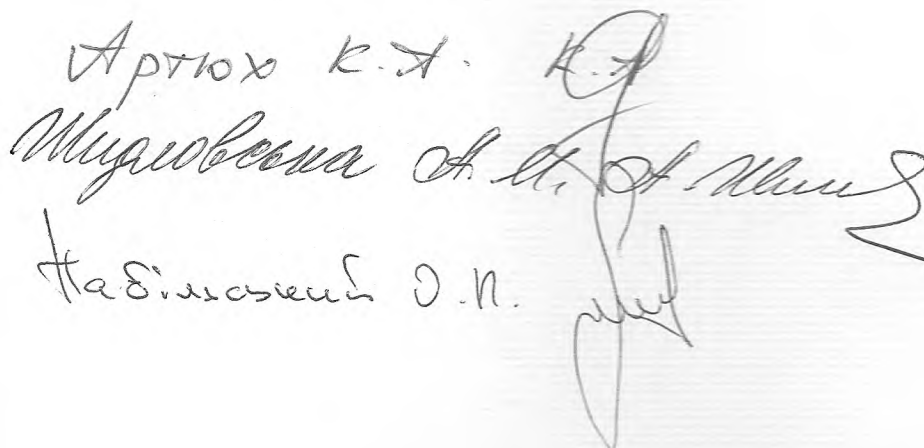 Артюх К.А. К.А
Шидловська А.М. А.
Набільський О.П.